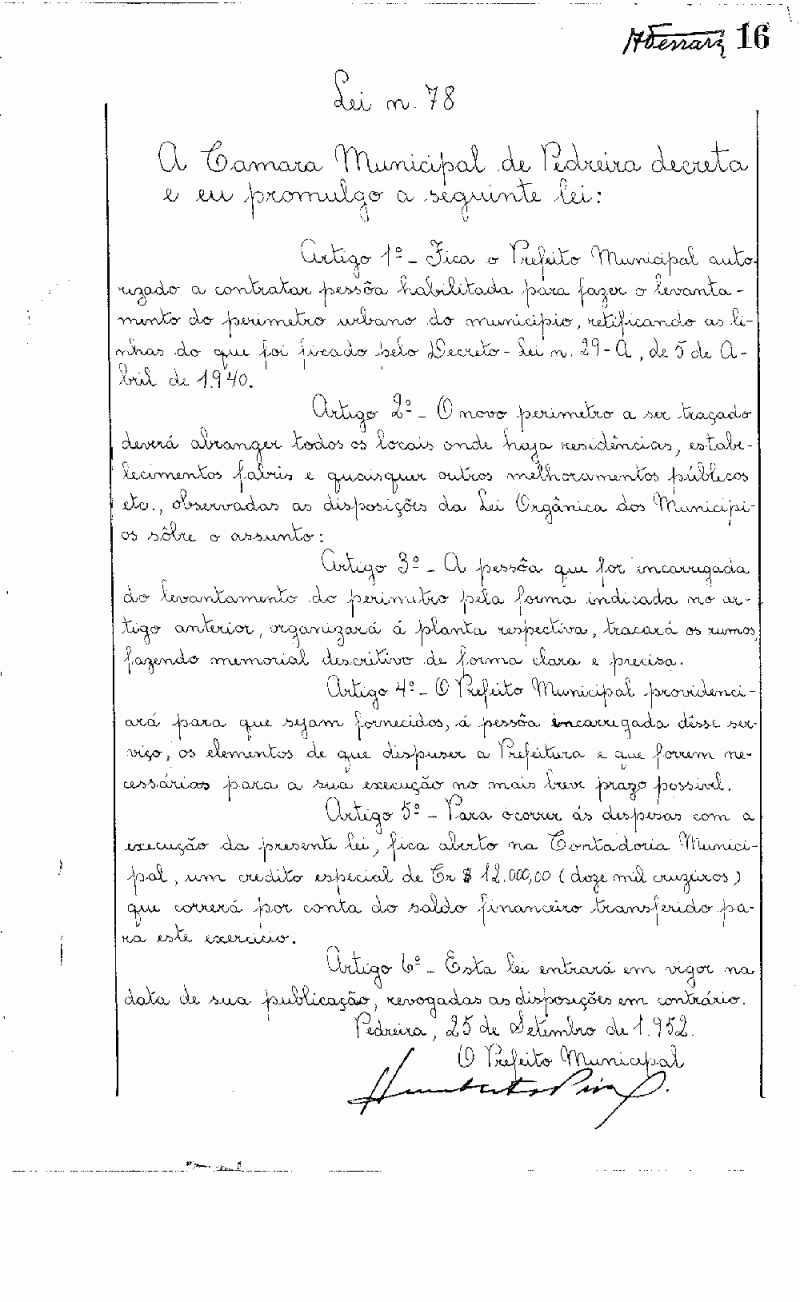 16
Lei n. 78
A Camara Municipal de Pedreira decreta
e eu promulgo a seguinte lei:
Artigo 1º - Fica o Prefeito Municipal auto-
rizado a contratar pessôa habilitada para fazer o levanta-
mento do perimetro urbano do municipio, retificando as li-
nhas do que foi ficado pelo Decreto-lei n. 29-A, de 5 de A-
bril de 1.940.
Artigo 2º - O novo perimetro a ser traçado
deverá abranger todos os locais onde haja residências, estabe-
lecimentos fabris e quaisquer outros melhoramentos públicos
etc., observadas as disposições da Lei Orgânica dos Municipi-
os sôbre o assunto:
Artigo 3º - A pessôa que for encarregada
do levantamento do perimetro pela forma indicada no ar-
tigo anterior, organizará á planta respectiva, tracará os rumos,
fazendo memorial descritivo de forma clara e precisa.
Artigo 4º - O Prefeito Municipal providenci-
ará para que sejam fornecidos, á pessôa encarregada dêsse ser-
viço, os elementos de que dispuser a Prefeitura e que forem ne-
cessários para a sua execução no mais breve prazo possivel.
Artigo 5º - Para ocorrer ás despesas com a
execução da presente lei, fica aberto na Contadoria Munici-
pal, um credito especial de Cr $ 12.000,00 (doze mil cruzeiros)
que correrá por conta do saldo financeiro transferido pa-
ra este exercicio.
Artigo 6º - Esta lei entrará em vigor na
data de sua publicação, revogadas as disposições em contrário.
Pedreira, 25 de Setembro de 1.952.
O Prefeito Municipal